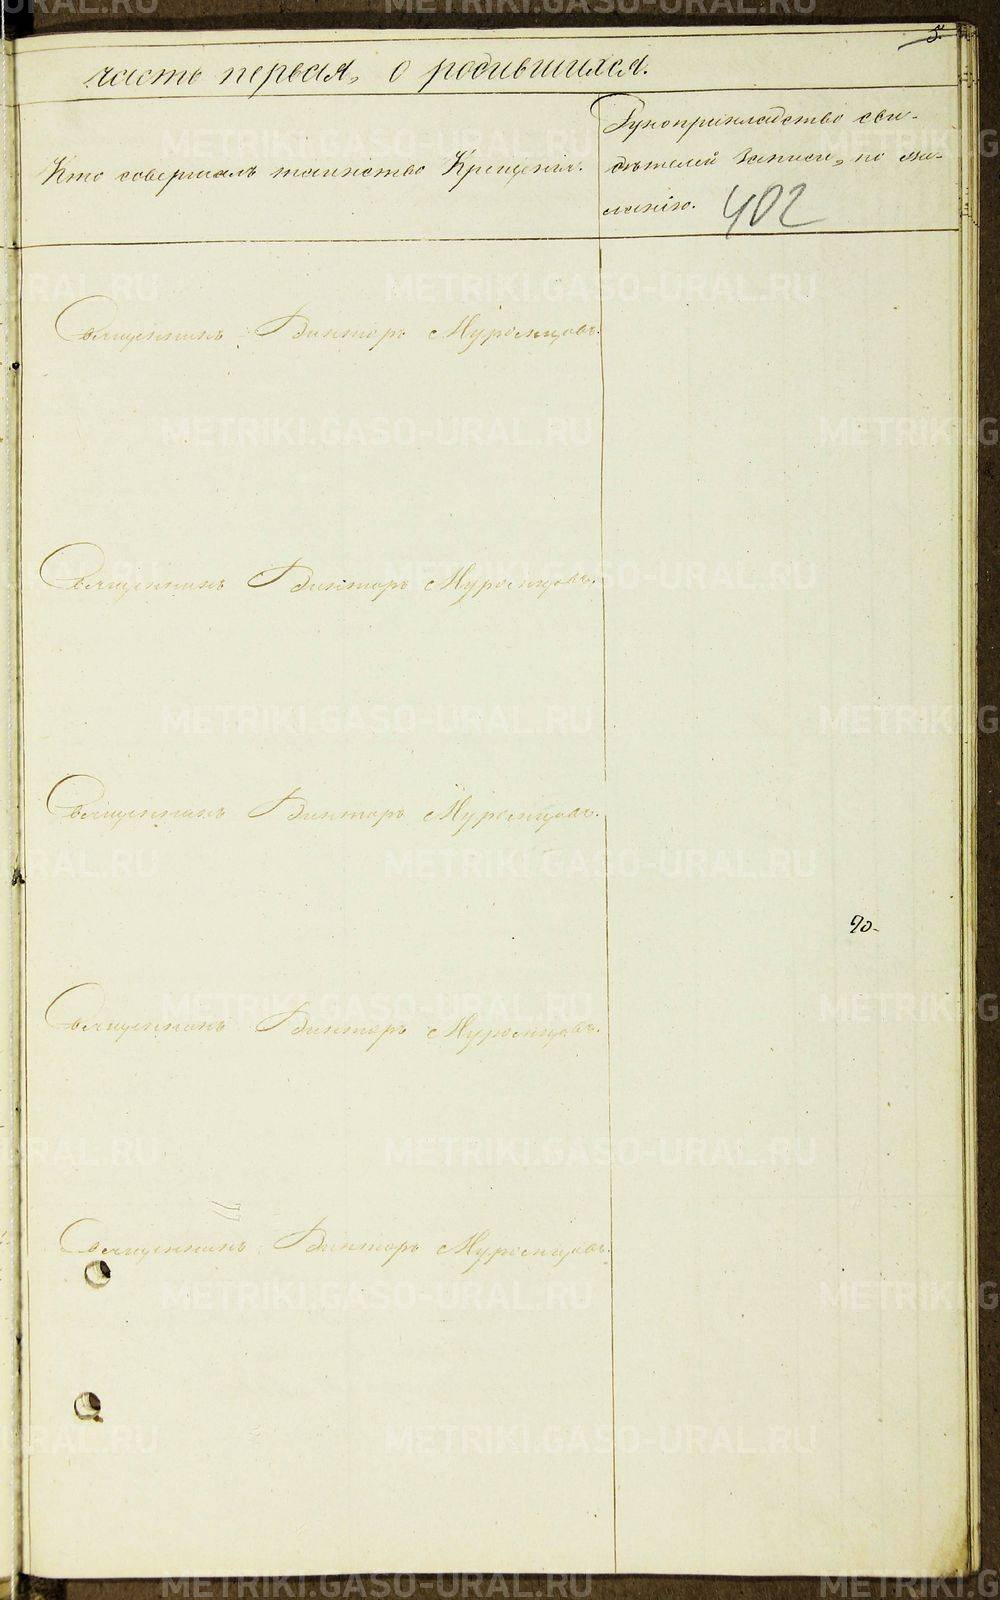 5.
часть первая, о родившихся.
Кто совершалъ таинство Крещенія.
Рукоприкладство сви-
дѣтелей записи, по же-
ланію.
402
Священникъ Викторъ Муромцовъ.
Священникъ Викторъ Муромцовъ.
Священникъ Викторъ Муромцовъ.
Священникъ Викторъ Муромцовъ.
Священникъ Викторъ Муромцовъ.
METRIKI.GASO-URAL.RU